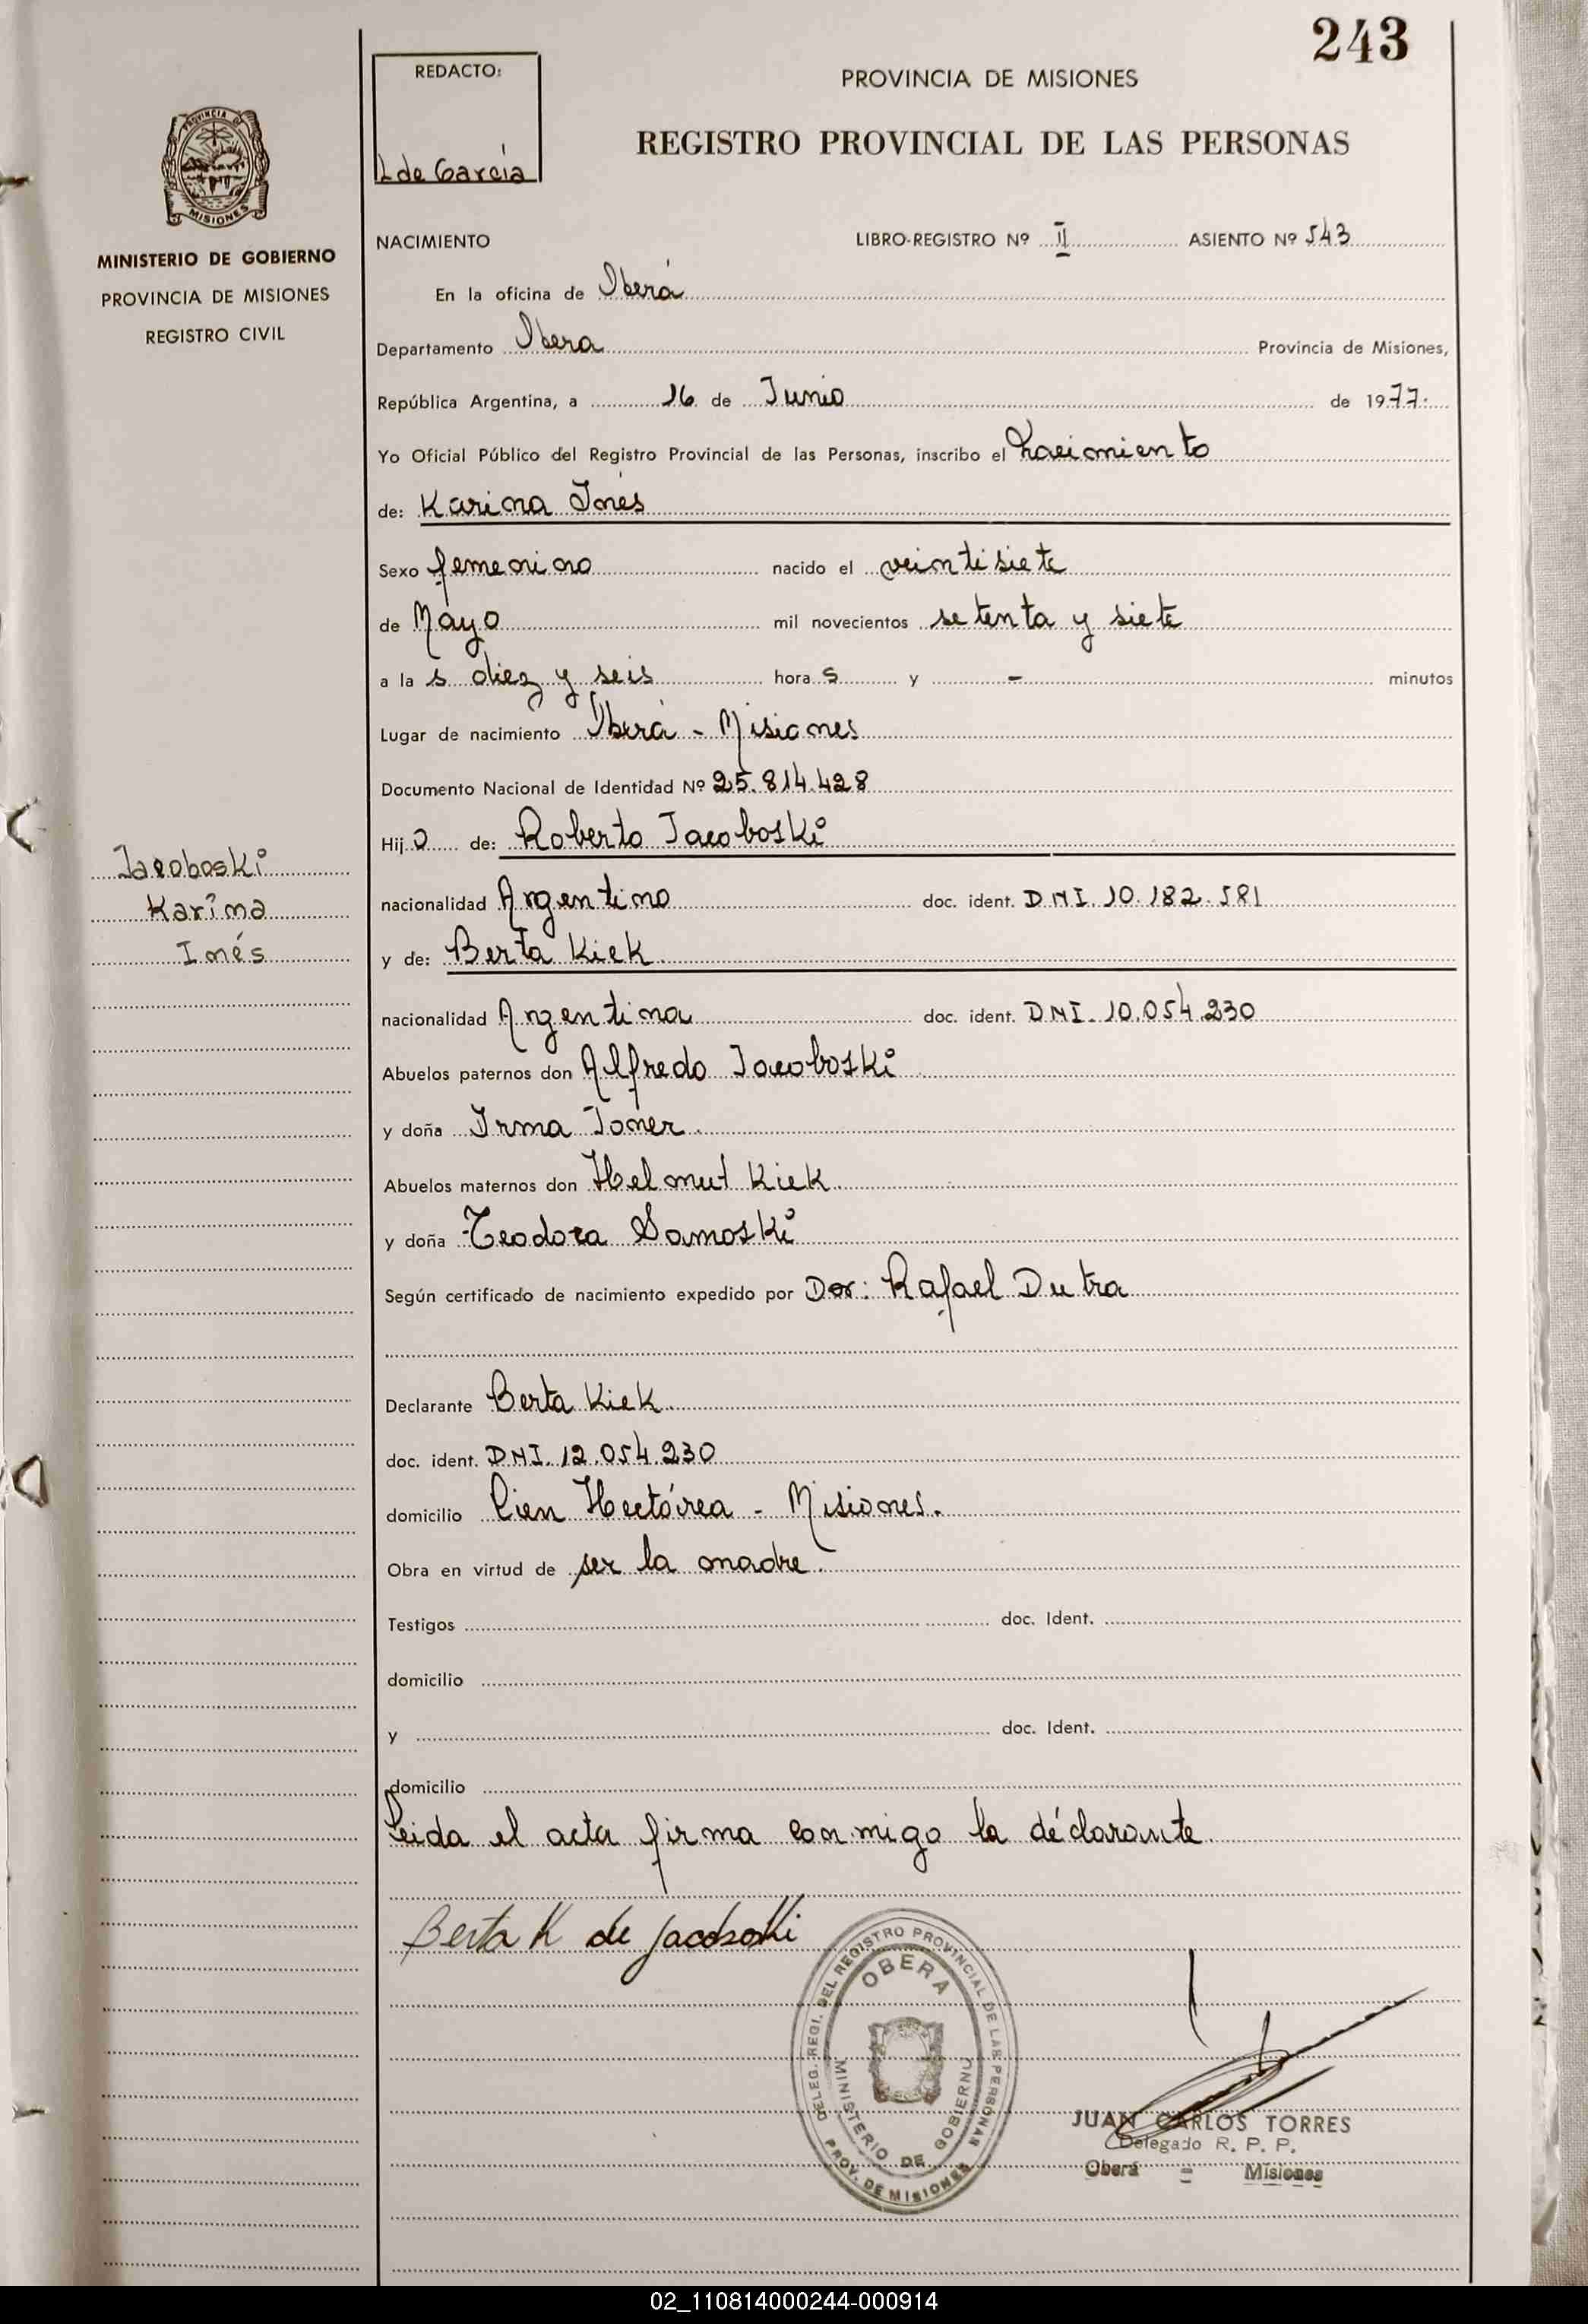 243
REDACTO:
L de García
PROVINCIA DE MISIONES
REGISTRO PROVINCIAL DE LAS PERSONAS
PROVINCIA DE
MISIONES
MINISTERIO DE GOBIERNO
PROVINCIA DE MISIONES
REGISTRO CIVIL
NACIMIENTO LIBRO-REGISTRO Nº II ASIENTO Nº 543
En la oficina de Oberá
Departamento Obera Provincia de Misiones,
República Argentina, a 16 de Junio de 1977.
Yo Oficial Público del Registro Provincial de las Personas, inscribo el nacimiento
de: Karina Inés
Sexo femenino nacido el veintisiete
de Mayo mil novecientos setenta y siete
a la s diez y seis hora s y - minutos
Lugar de nacimiento Oberá - Misiones
Documento Nacional de Identidad Nº 25.814.428
Hij a de: Roberto Jacoboski
Jacoboski
Karina
Inés
nacionalidad Argentino doc. ident. DNI. 10.182.581
y de: Berta Kiek.
nacionalidad Argentina doc. ident. DNI. 10.054.230
Abuelos paternos don Alfredo Jacoboski
y doña Irma Joner.
Abuelos maternos don Helmut Kiek.
y doña Teodora Samoski
Según certificado de nacimiento expedido por Dor: Rafael Dutra
Declarante Berta Kiek.
doc. ident. DNI. 12.054.230
domicilio Cien Hectárea - Misiones.
Obra en virtud de ser la madre.
Testigos doc. Ident.
domicilio
y doc. Ident.
domicilio
Leida el acta firma conmigo la déclarante
Berta K de Jacoboski
DELEG. REGI. DEL REGISTRO PROVINCIAL DE LAS PERSONAS
OBERA
MINISTERIO DE GOBIERNO
PROV. DE MISIONES
JUAN CARLOS TORRES
Delegado R. P. P.
Oberá - Misiones
02_110814000244-000914